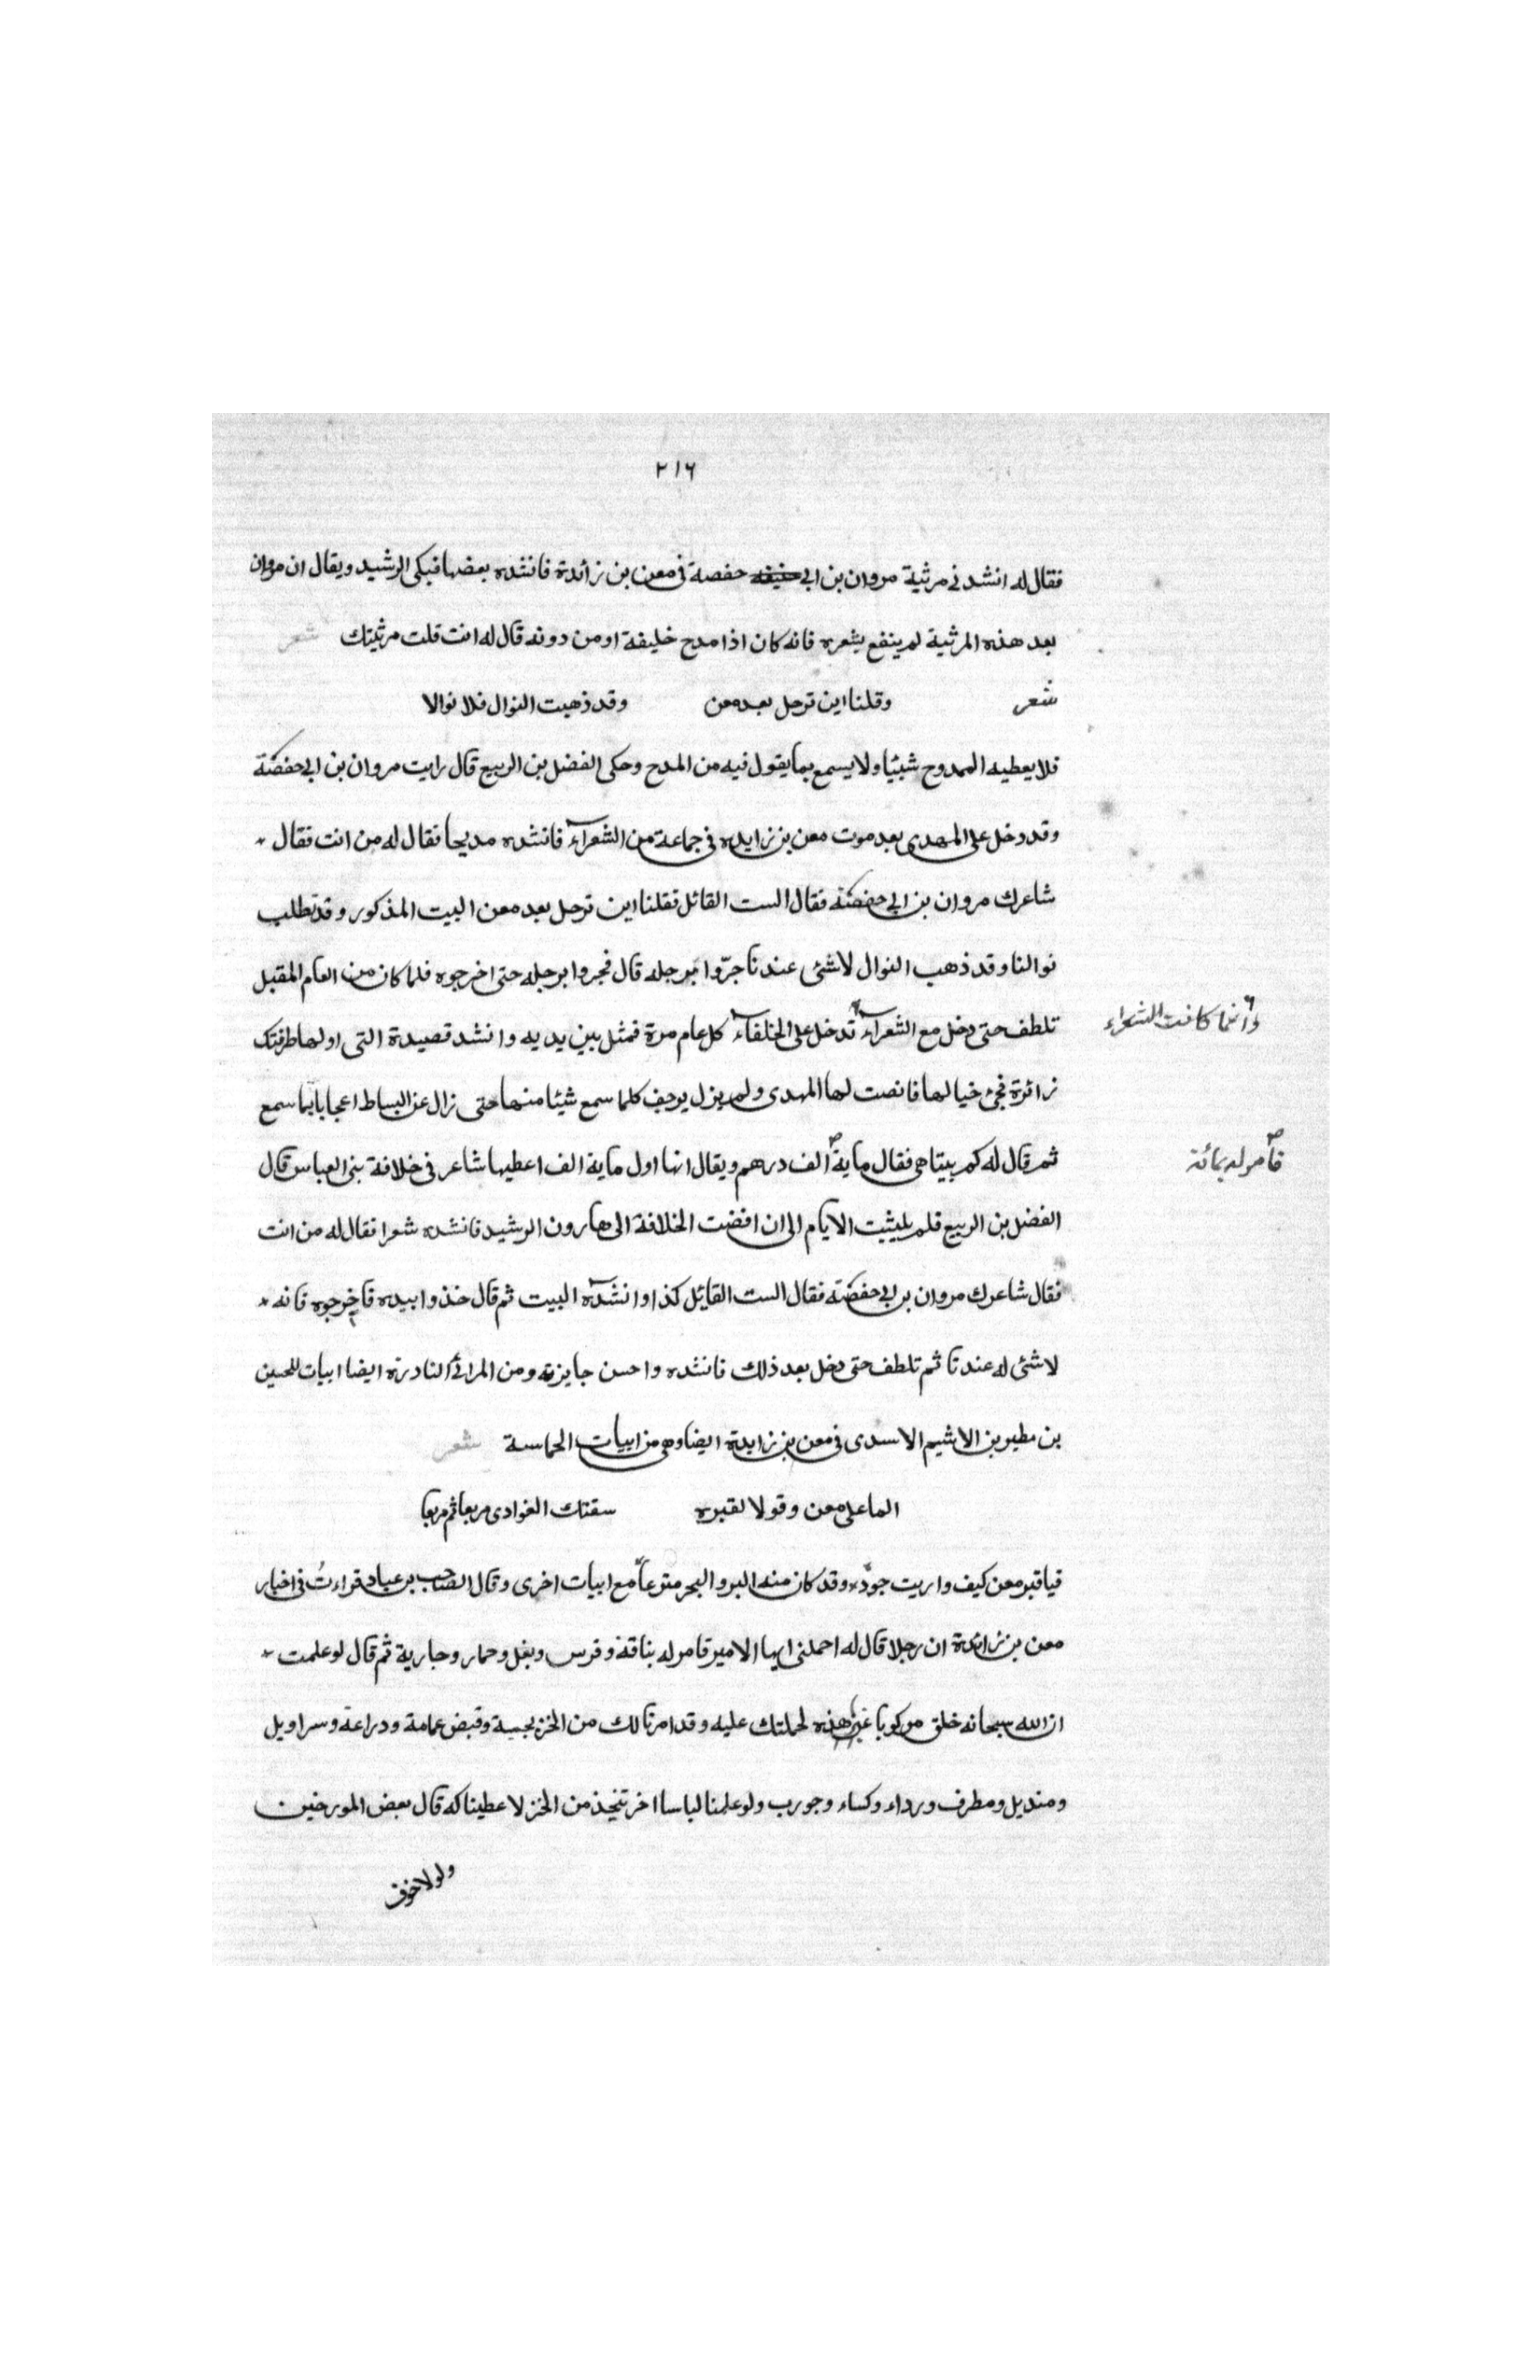 ٢١٦
فقال له انشد نى مرثية مروان بن ابى حنيفه حفصة فى معن بن زائدة فانشده بعضها فبكى الرشيد ويقال ان مروان
بعد هذه المرثية لم ينفع بشعره فانه كان اذا مدح خليفة او من دونه قال له انت قلت مرثيتك شعر
شعر وقلنا اين ترحل بعد معن وقد ذهبت النوال فلا نوالا
فلا يعطيه الممدوح شيئا ولا يسمع بما يقول فيه من المدح وحكى الفضل بن الربيع قال رايت مروان بن ابى حفصة
وقد دخل على المهدى بعد موت معن بن زايده فى جماعة من الشعرآء فانشده مديحا فقال له من انت فقال
شاعرك مروان بن ابى حفصة فقال الست القائل فقلنا اين ترحل بعد معن البيت المذكور وقد تطلب
نوالنا وقد ذهب النوال لا شئ عندنا جرّوا برجله قال فجروا برجله حتى اخرجوه فلما كان من العام المقبل
تلطف حتى دخل مع الشعرآء تدخل على الخلفآء كل عام مرة فمثل بين يديه وانشد قصيدة التى اولها طرقتك
وانما كانت الشعراء
زائرة فحئ خيالها فانصت لها المهدى ولم يزل يوجف كلما سمع شيئا منها حتى زال عن البساط اعجابا بما سمع
ثم قال له كم بيتا هى فقال ماية الف درهم ويقال انها اول ماية الف اعطيها شاعر فى خلافة بنى العباس قال
صح فامر له بمائة
الفضل بن الربيع فلم يلبثت الايام الى ان افضت الخلافة الى هارون الرشيد فانشده شعرا فقال له من انت
فقال شاعرك مروان بن ابى حفصة فقال الست القايل كذا وانشده البيت ثم قال خذوا بيده فاخرجوه فانه
لا شئ له عندنا ثم تلطف حتى دخل بعد ذلك فانشده واحسن جايزته ومن المراثى النادرة ايضا ابيات للحسين
بن مطير بن الاشيم الاسدى فى معن بن زايدة ايضا وهى من ابيات الحماسة شعر
الما على معن وقولا لقبره سقتك الغوادى مربعا ثم مربعا
فيا قبر معن كيف واريت جوده وقد كان منه البر والبحر مترعاً مع ابيات اخرى وقال الصاحب بن عباد قراءتُ فى اخبار
معن بن زائدة ان رجلا قال له احملنى ايها الامير فامر له بناقة وفرس وبغل وحمار وجارية ثم قال لو علمت
ان الله سبحانه خلق مركوبا غير هذه لحملتك عليه وقد امرنا لك من الخز بجبة وقميض عمامة ودراعة وسراويل
ومنديل ومطرف ورداء وكساء وجورب ولو علمنا لباسا اخر تتخذ من الخز لاعطيناكه قال بعض المورخين
ولولا خوف